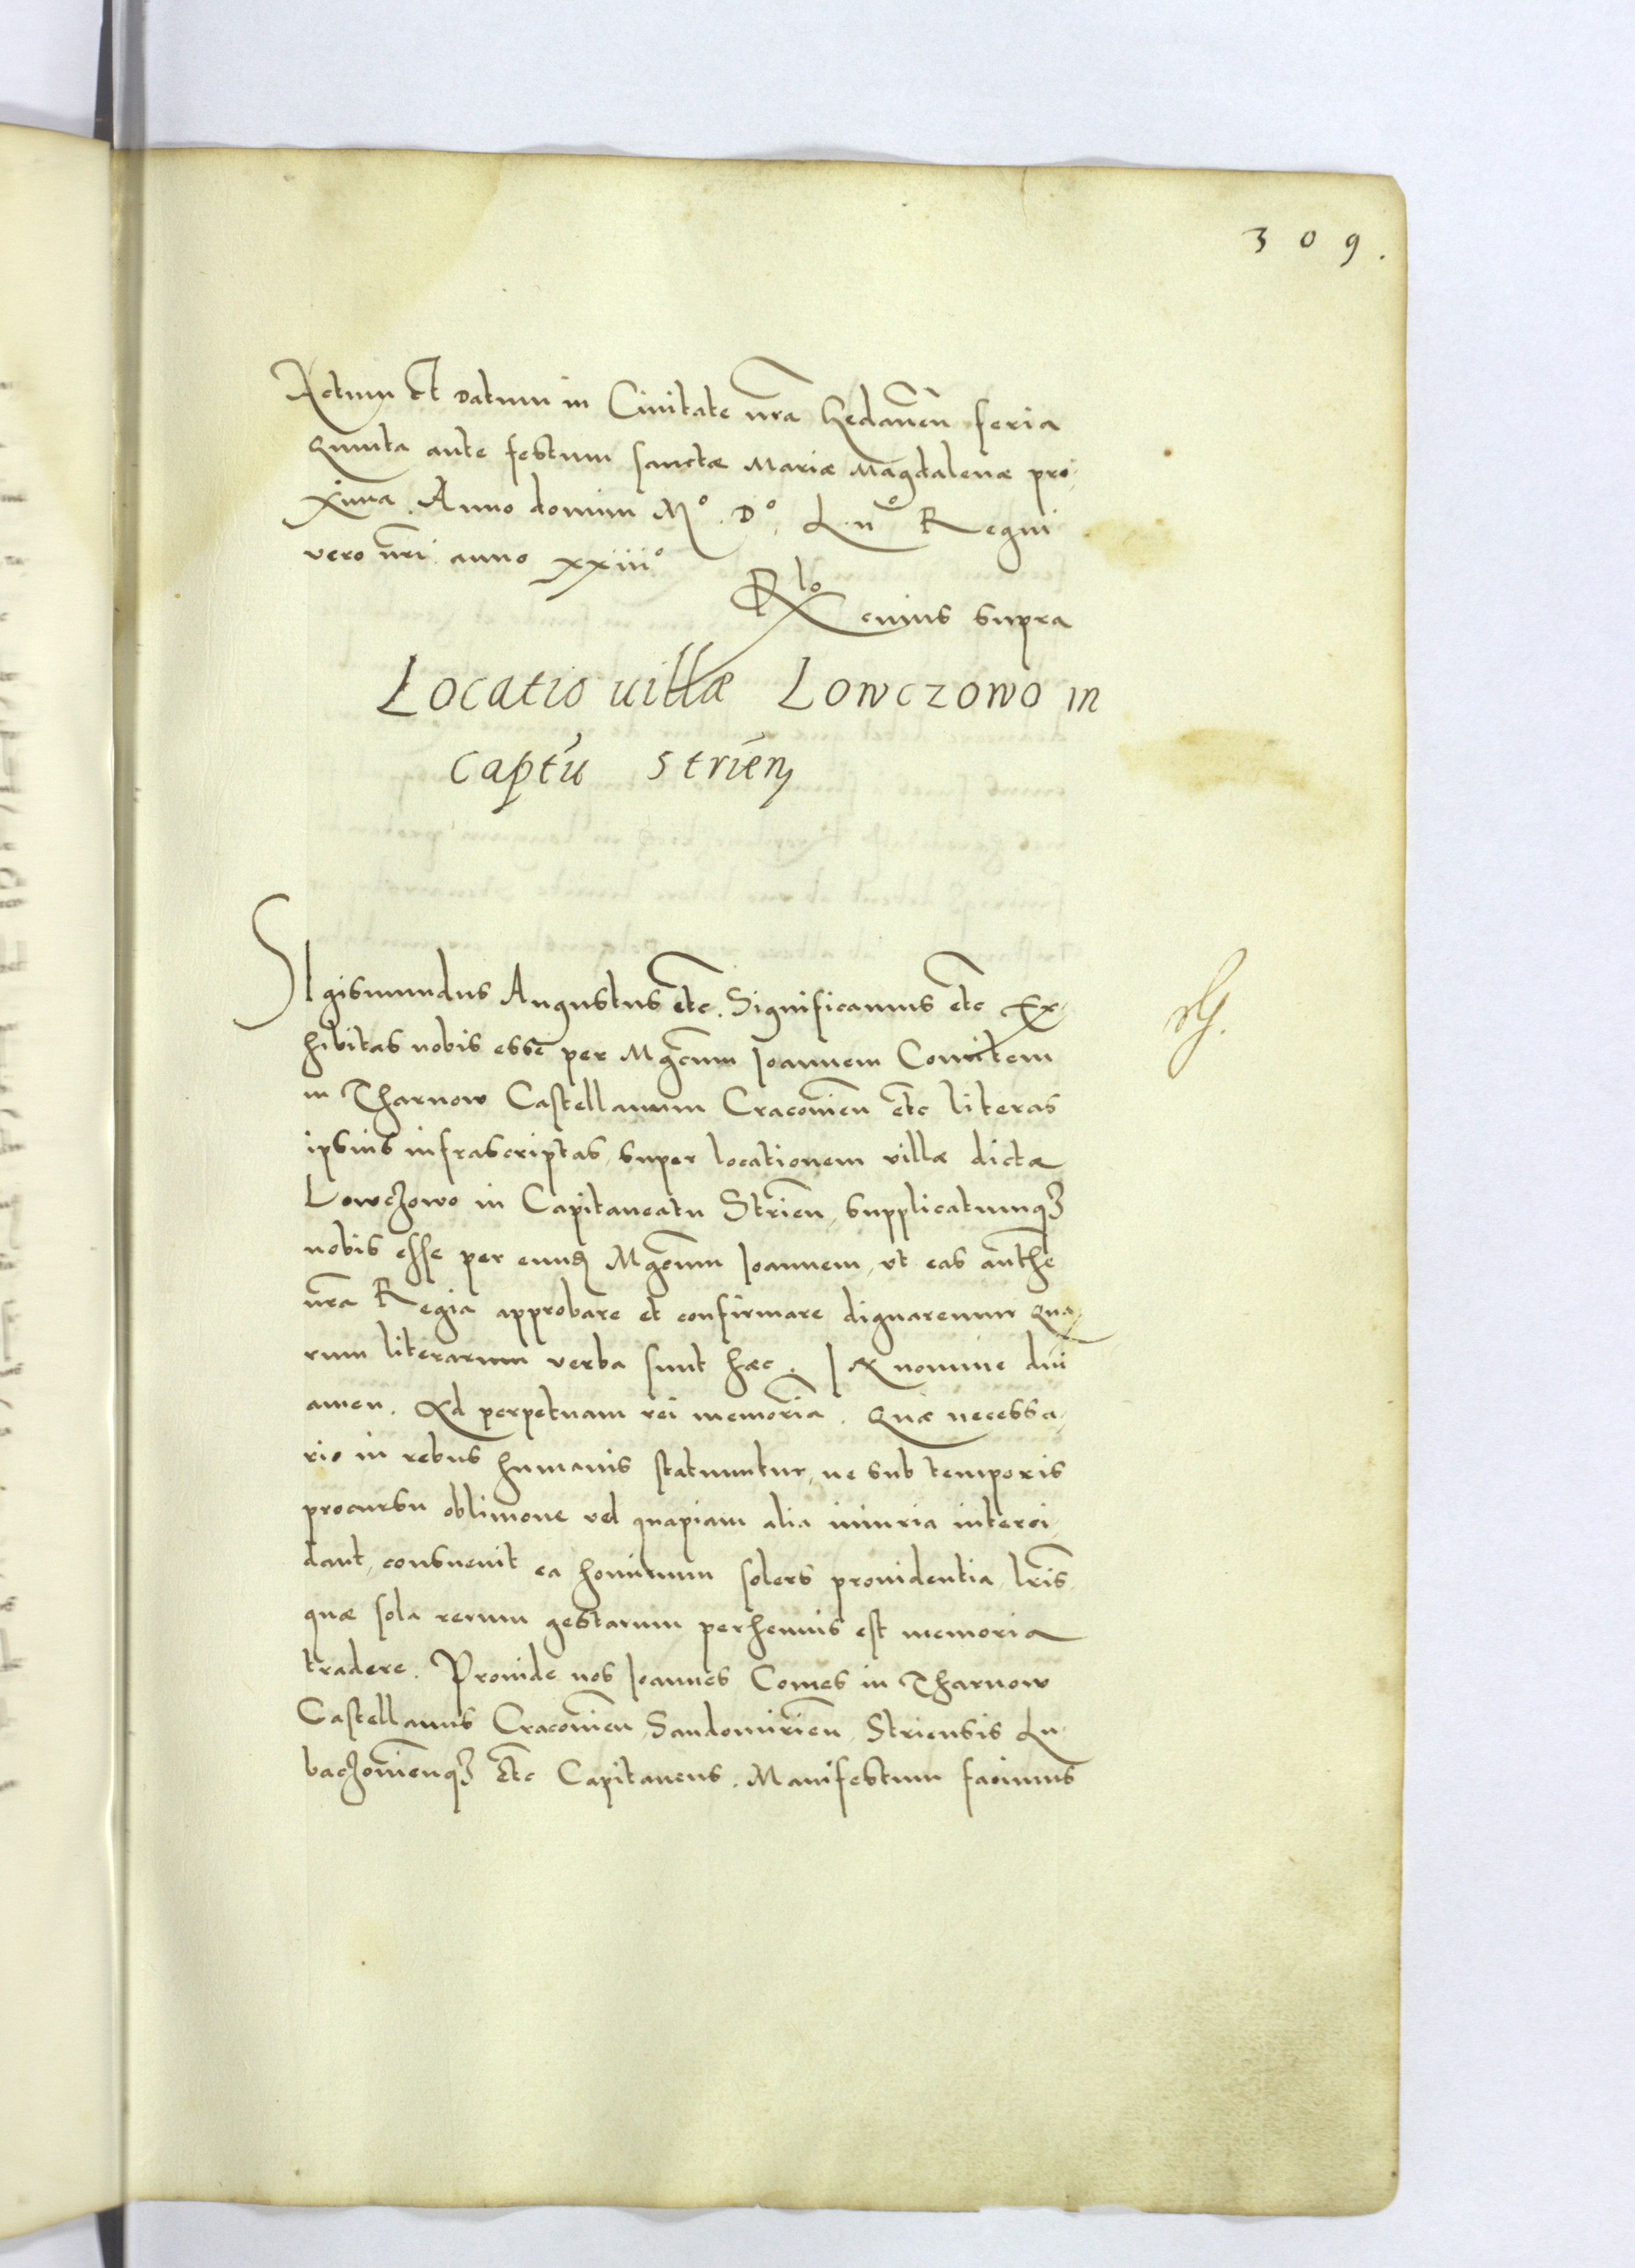 309.
Actum et datum in Ciuitate nr̃a Gedanen̄ feria
Quinta ante festum sanctæ Mariæ Magdalenæ pro,
xima. Anno domini Mº. Dº. L.iiº Regni
vero nr̃i anno xxiiiº
Rlo cuius supra
Locatio uillæ Lowczowo in
captu Strien̄
SIgismundus Augustus etc. Significamus etc Ex,
hibitas nobis esse per Mgcum Joannem Comitem
in Tharnow Castellanum Cracouien̄ etc literas
ipsius infrascriptas, super locationem villæ dictæ
Lowczowo in Capitaneatu Strien̄, supplicatumqꝫ
nobis esse per eund Mgcum Joannem, vt eas authe
nr̃a Regia approbare et confirmare dignaremur Qua,
rum literarum verba sunt hæc. In nomine dni
amen. Ad perpetuam rei memoriã. Quæ necessa,
rio in rebus humanis statuuntur, ne sub temporis
procursu obliuione vel quapiam alia iniuria interci,
dant, consueuit ea hominum solers prouidentia, lr̃is
quæ sola rerum gestarum perhennis est memoria
tradere. Prouide nos Joannes Comes in Tharnow
Castellanus Cracouien̄, Sandomirien̄, Striensis Lu,
baczouien̄qꝫ etc Capitaneus. Manifestum facimus